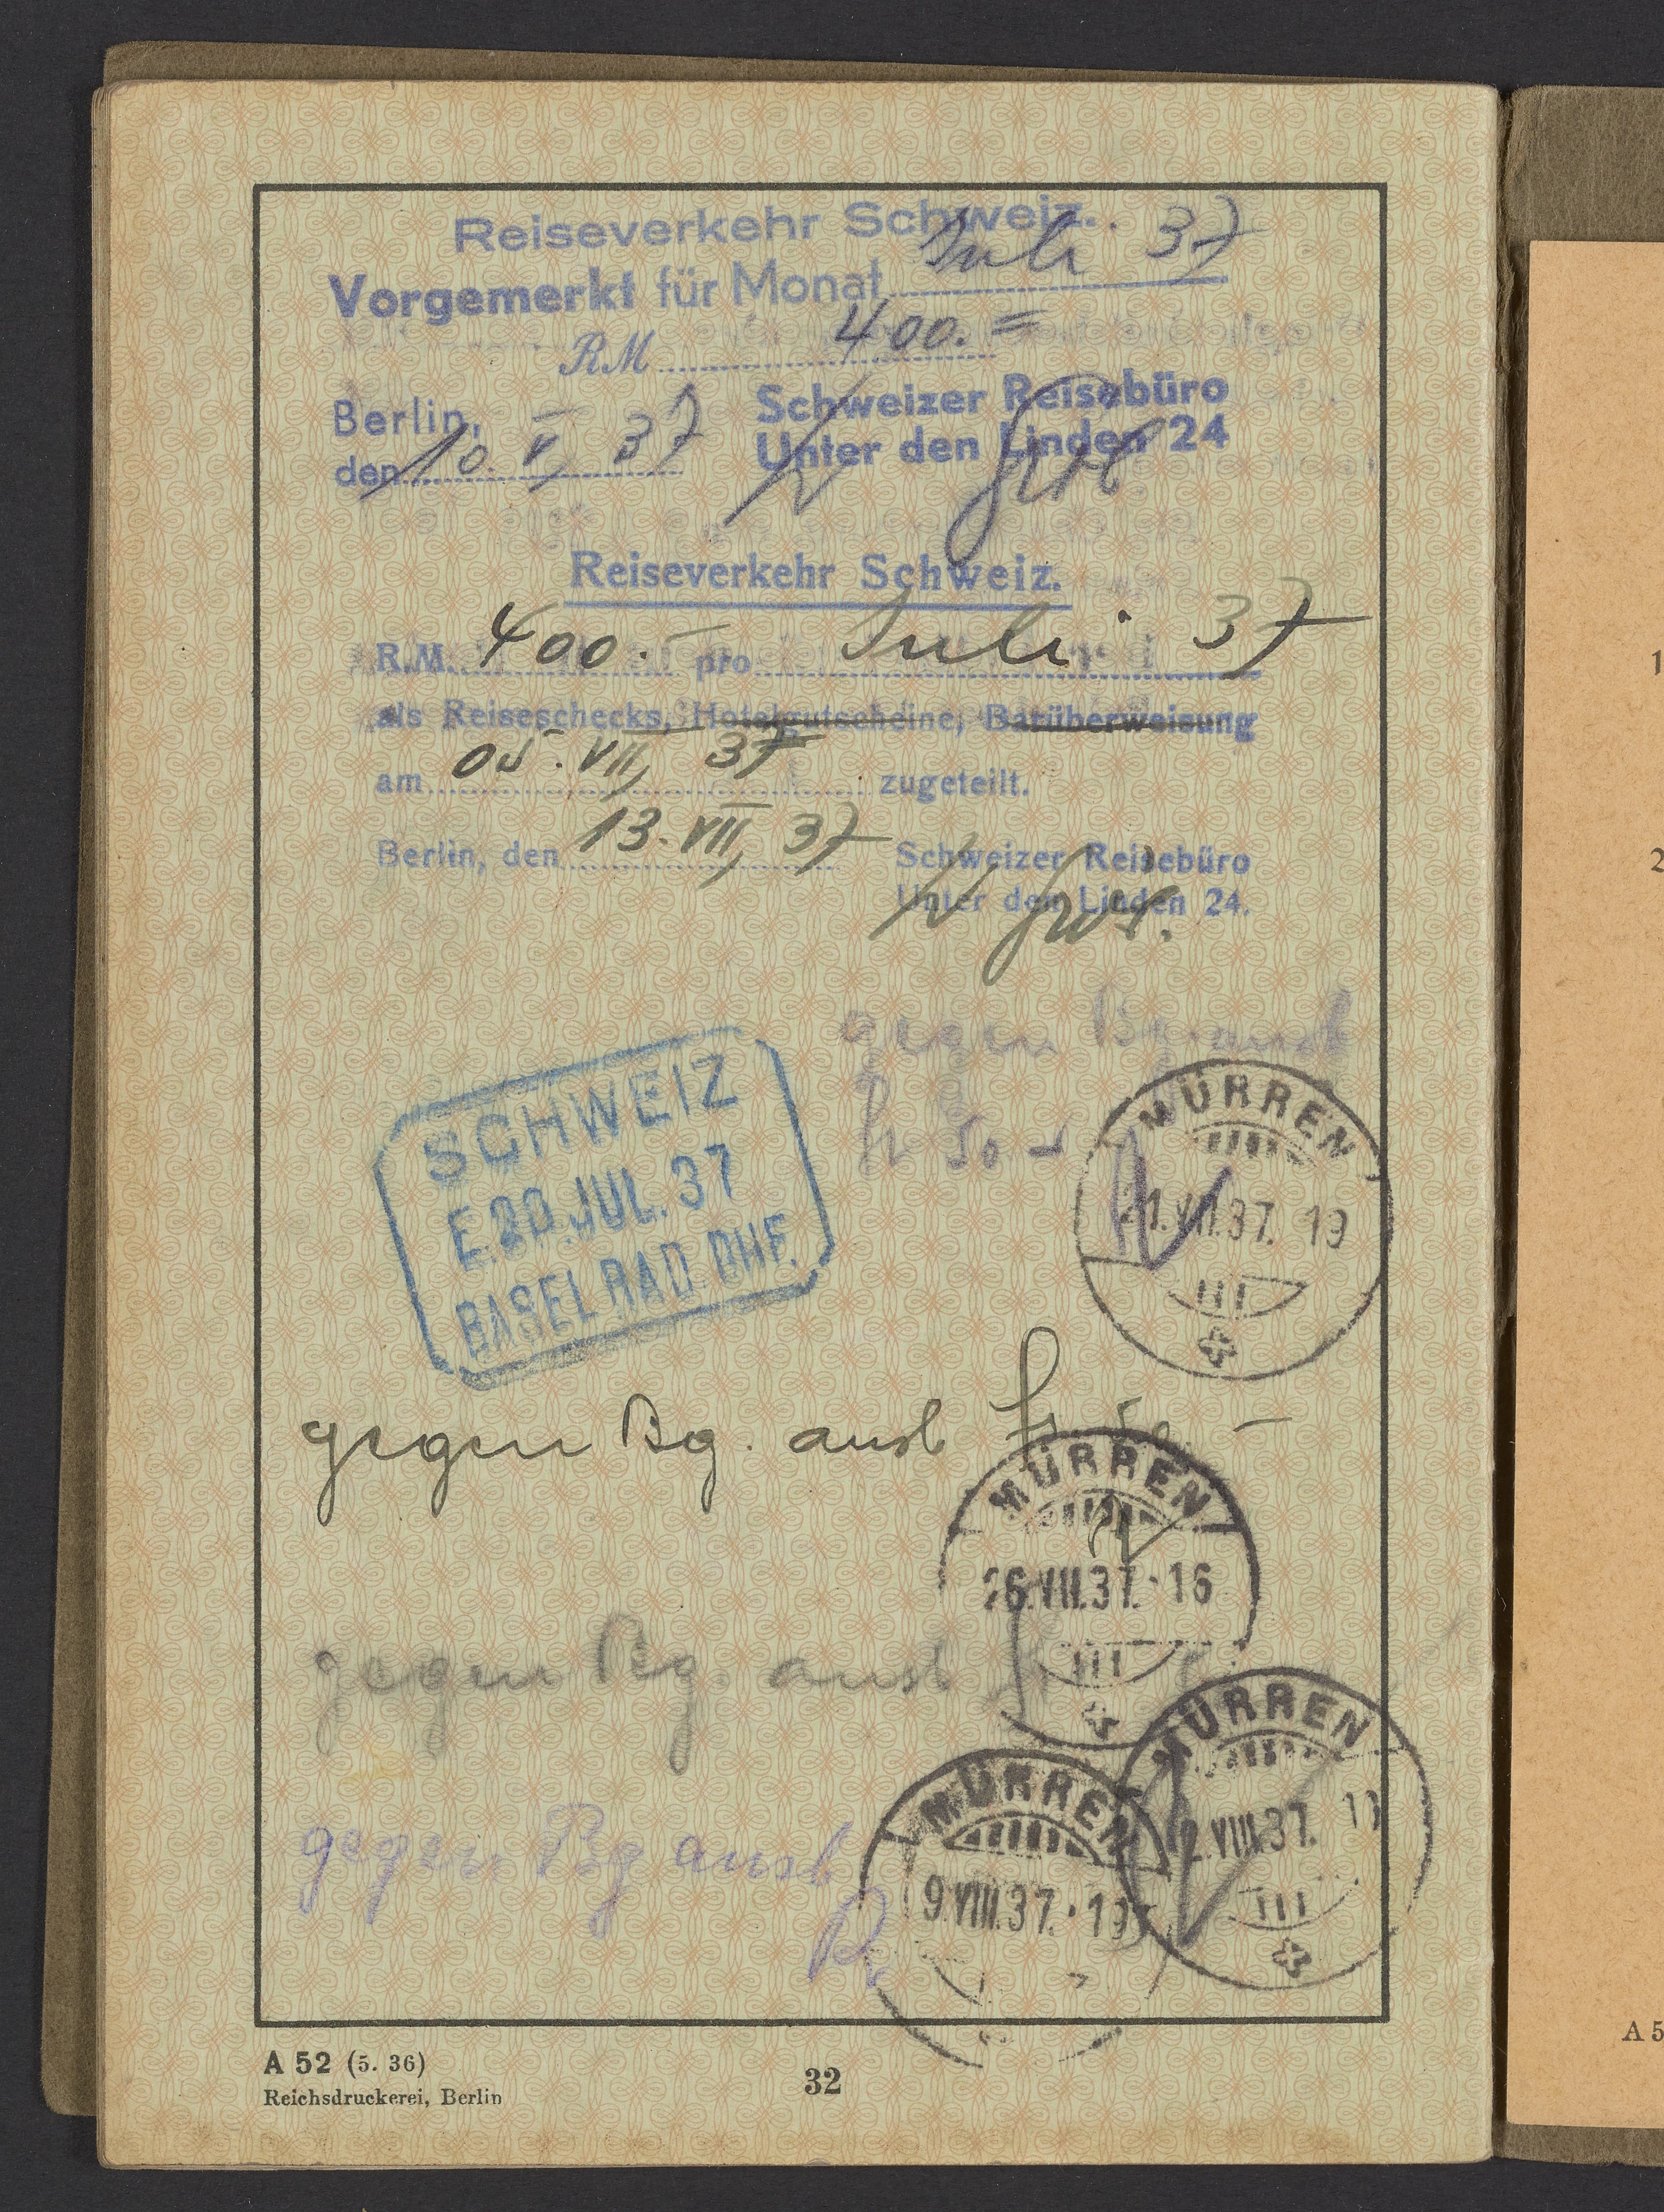 Reiseverkehr Schweiz.
Vorgemerkt für Monat Juli 37
RM 400.=
Berlin, den 10. V, 37
Schweizer Reisebüro
Unter den Linden 24
Reiseverkehr Schweiz.
R.M. 400.- pro Juli 37
als Reiseschecks, Hotelgutscheine, Barüberweisung
am 05. VII, 37 zugeteilt.
Berlin, den 13. VII, 37
Schweizer Reisebüro
Unter den Linden 24.
gegen Bg. ausb
fr 50 -
SCHWEIZ
E.20.JUL.37
BASEL BAD. BHF.
MÜRREN
21.VII.37. 19
III
gegen Bg. ausb fr
MÜRREN
26.VII.37. 16
III
gegen Bg. ausb
MÜRREN
2.VIII.37.
III
gegen Bg ausb
MÜRREN
9.VIII.37. 19
A 52 (5. 36)
Reichsdruckerei, Berlin
32
1
2
A 5